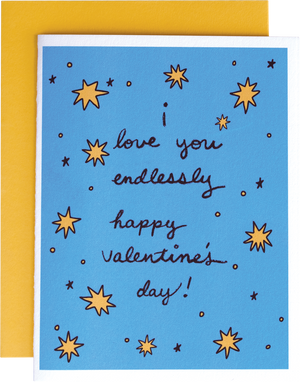 i
love you
endlessly
happy
valentine's
day!